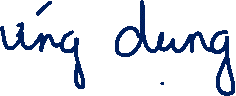 ứng dụng